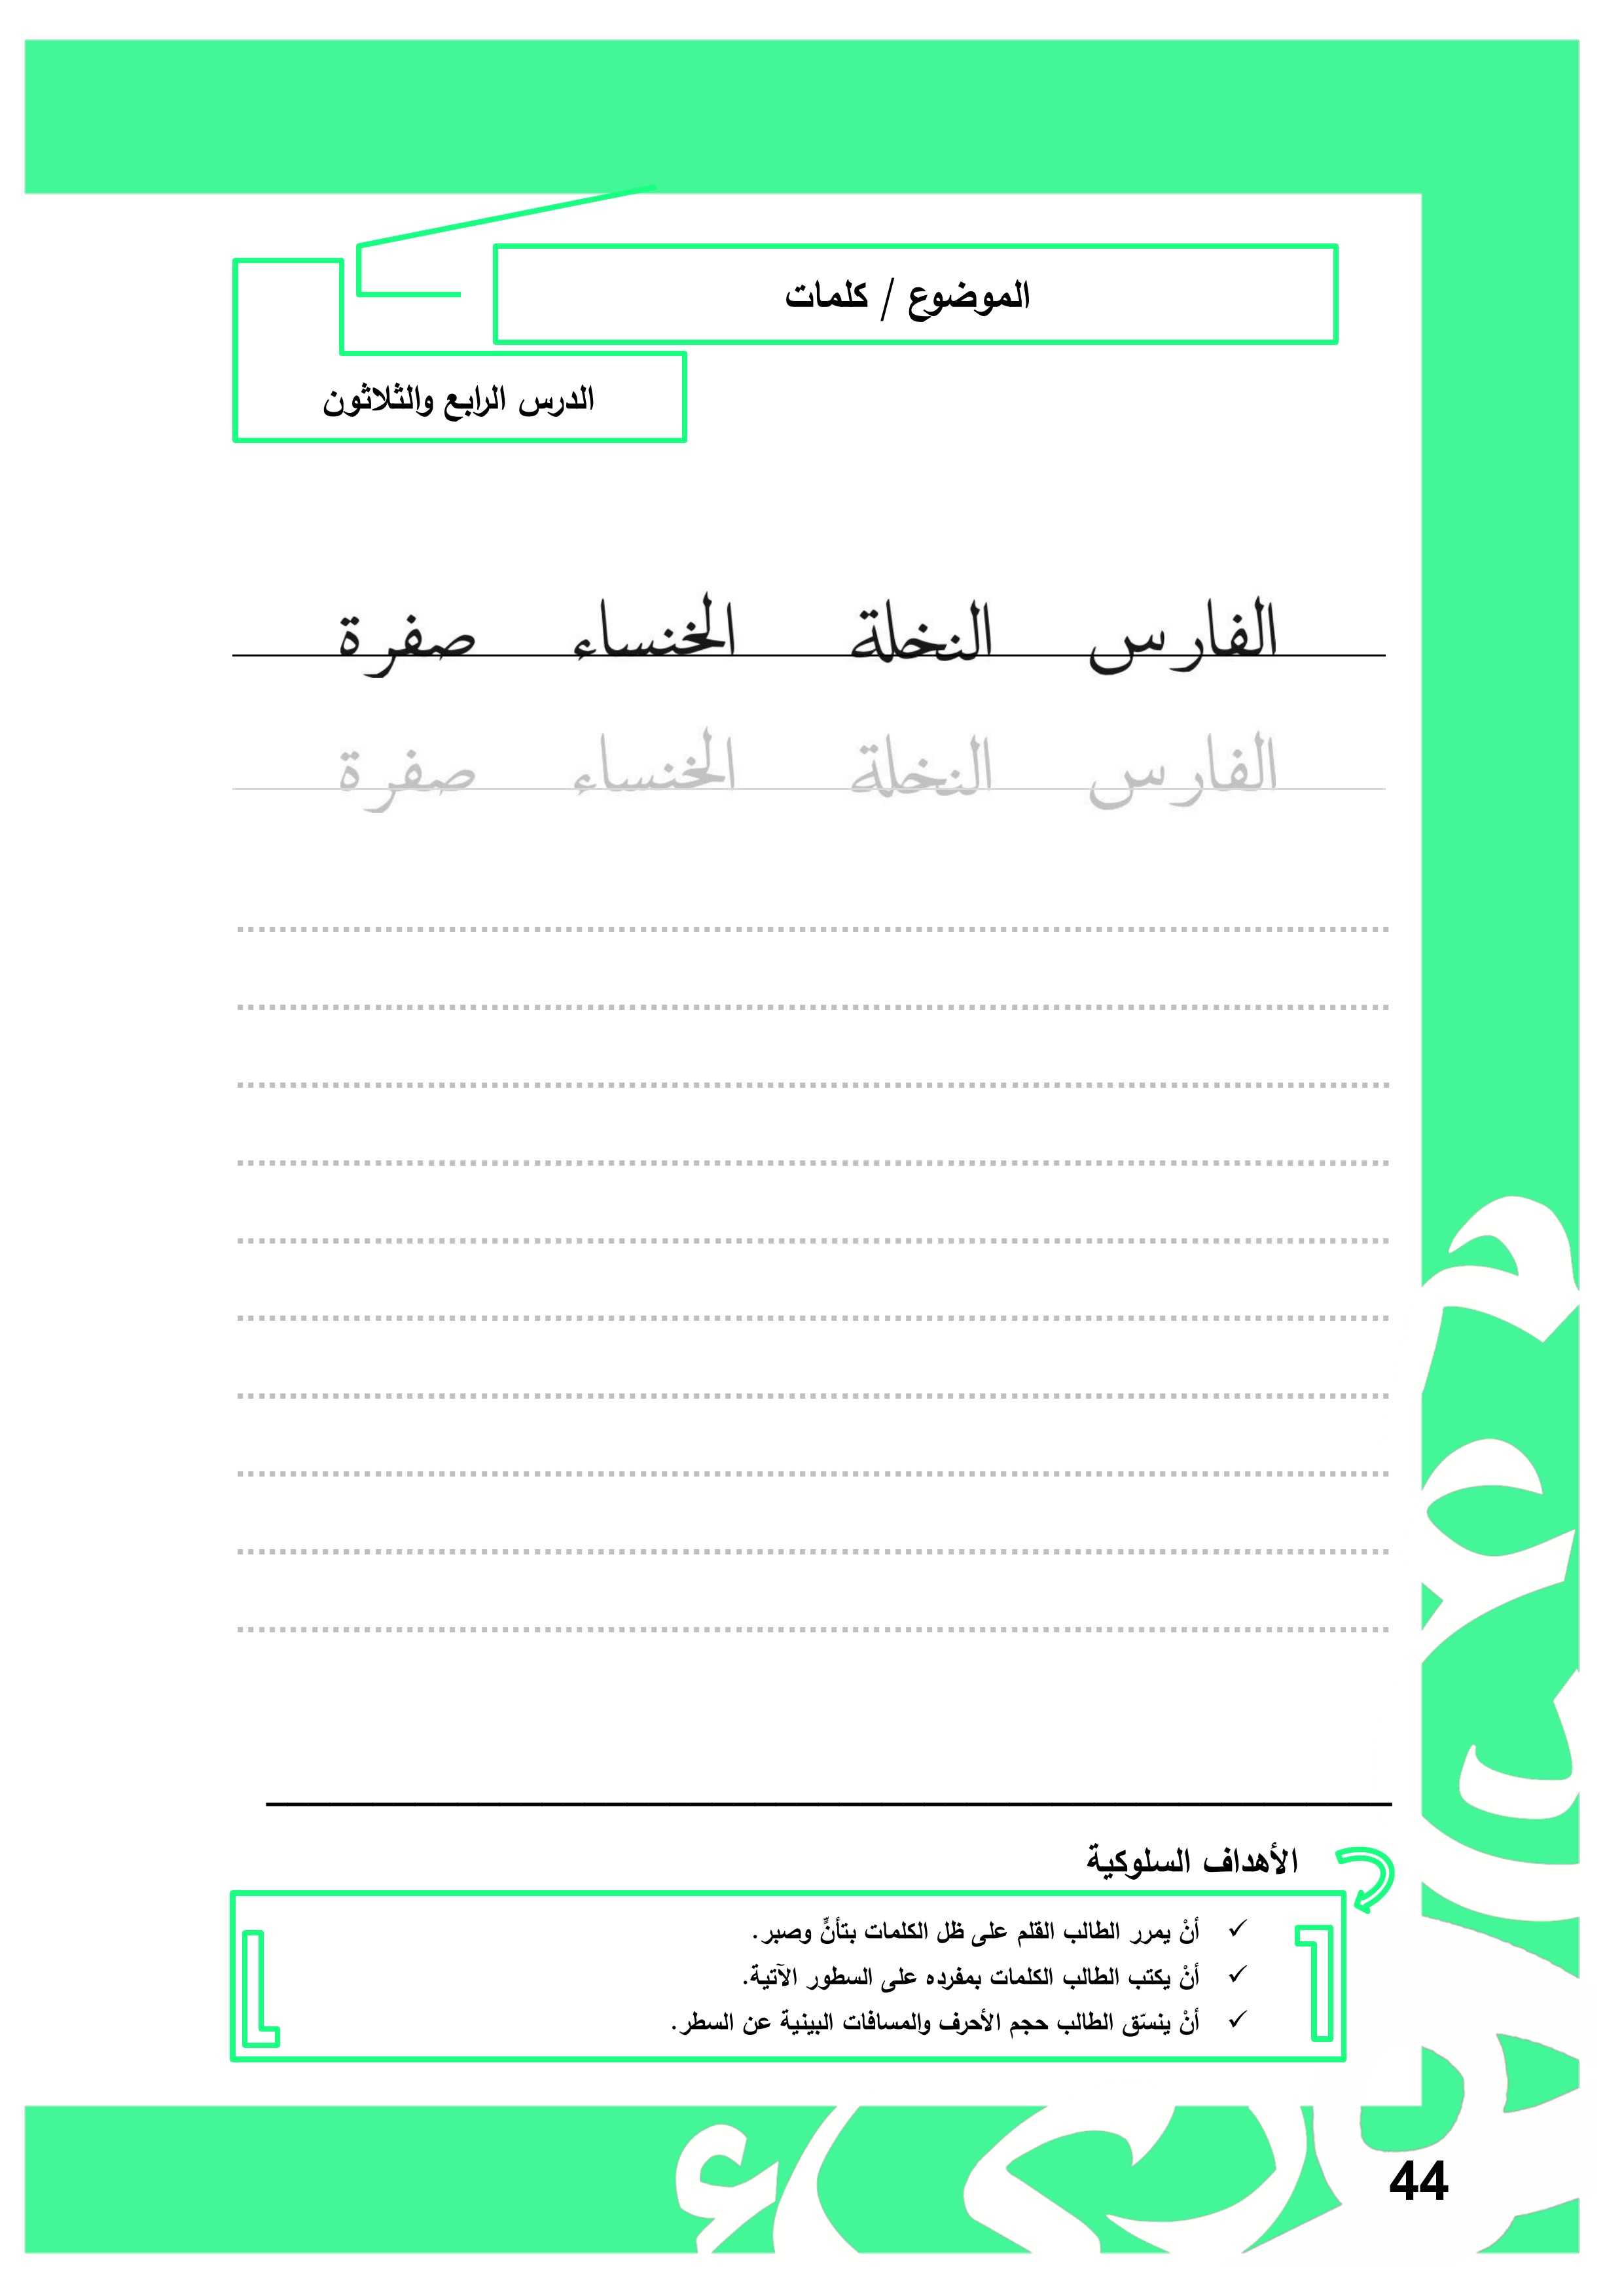 الموضوع / كلمات
الدرس الرابع والثلاثون
الفارس النخلة الخنساء صفرة
الفارس النخلة الخنساء صفرة
الأهداف السلوكية
✓ أنْ يمرر الطالب القلم على ظل الكلمات بتأنٍّ وصبر.
✓ أنْ يكتب الطالب الكلمات بمفرده على السطور الآتية.
✓ أنْ ينسّق الطالب حجم الأحرف والمسافات البينية عن السطر.
44